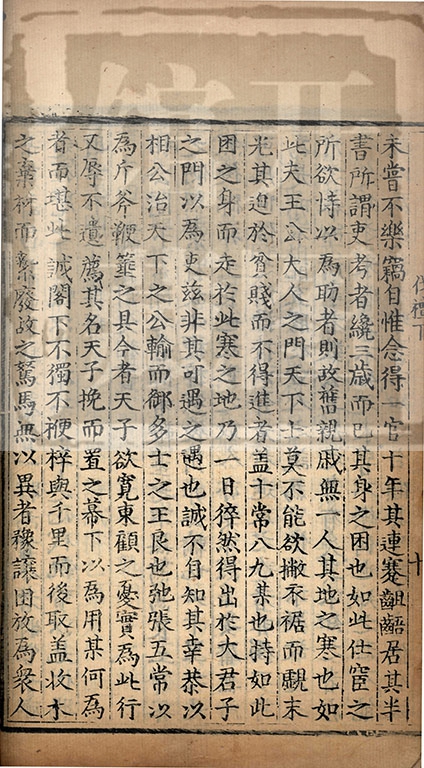 未嘗不樂竊自惟念得一官十年其連蹇齟齬居其半
書所謂吏考者纔三歳而已其身之困也如此仕宦之
所欲恃以爲助者則故舊親戚無一人其地之寒也如
此夫王公大人之門天下士莫不能欲撇衣裾而覬末
光其迫於貧賤而不得進者盖十常八九某也持如此
困之身而走於此寒之地乃一日猝然得出於大君子
之門以爲吏兹非其可遇之遇也誠不自知其幸恭以
相公治天下之公輸而御多士之王良也弛張五常以
爲斤斧鞭箠之具今者天子欲寛東顧之憂實爲此行
又辱不遺薦其名天子挽而置之幕下以爲用某何爲
者而堪此誠閤下不獨不楩梓與千里而後取盖收木
之棄朽而繫廢故之駑馬無以異者豫讓因放爲衆人